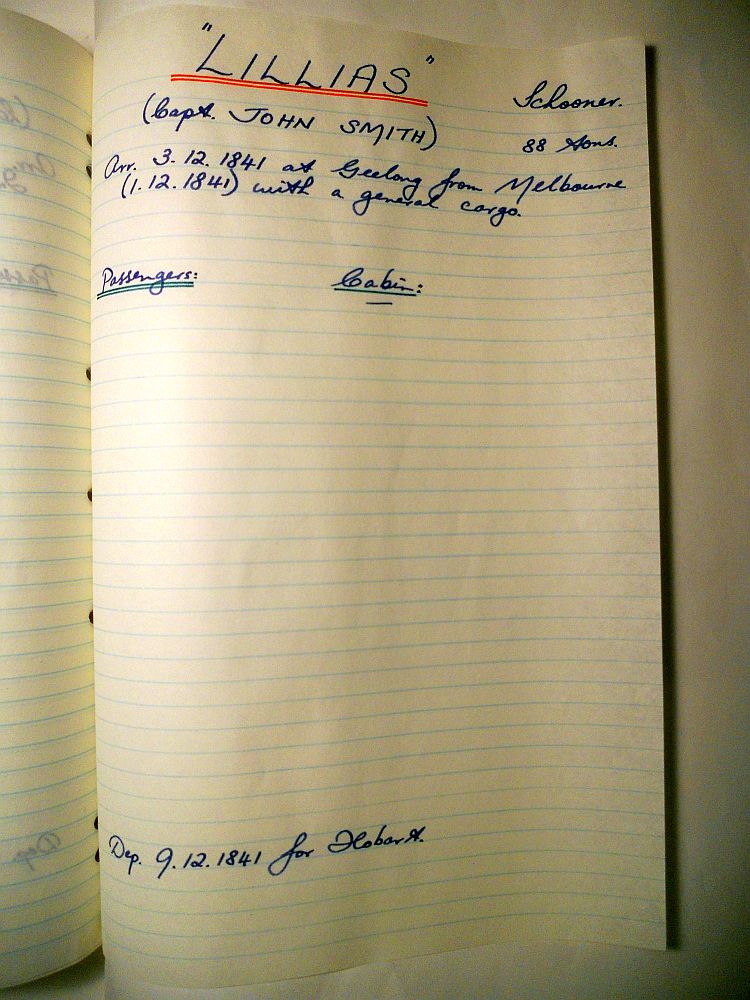 "LILLIAS"
Schooner.
(Capt. JOHN SMITH)
88 tons.
Arr. 3.12.1841 at Geelong from Melbourne
(1.12.1841) with a general cargo.
Passengers: Cabin:
—
Dep. 9.12.1841 for Hobart.
Dep.